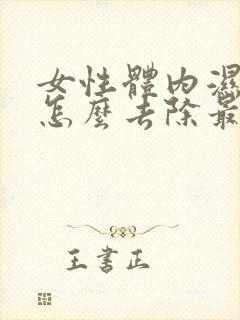 女性體內濕
怎麼去除最
王書正